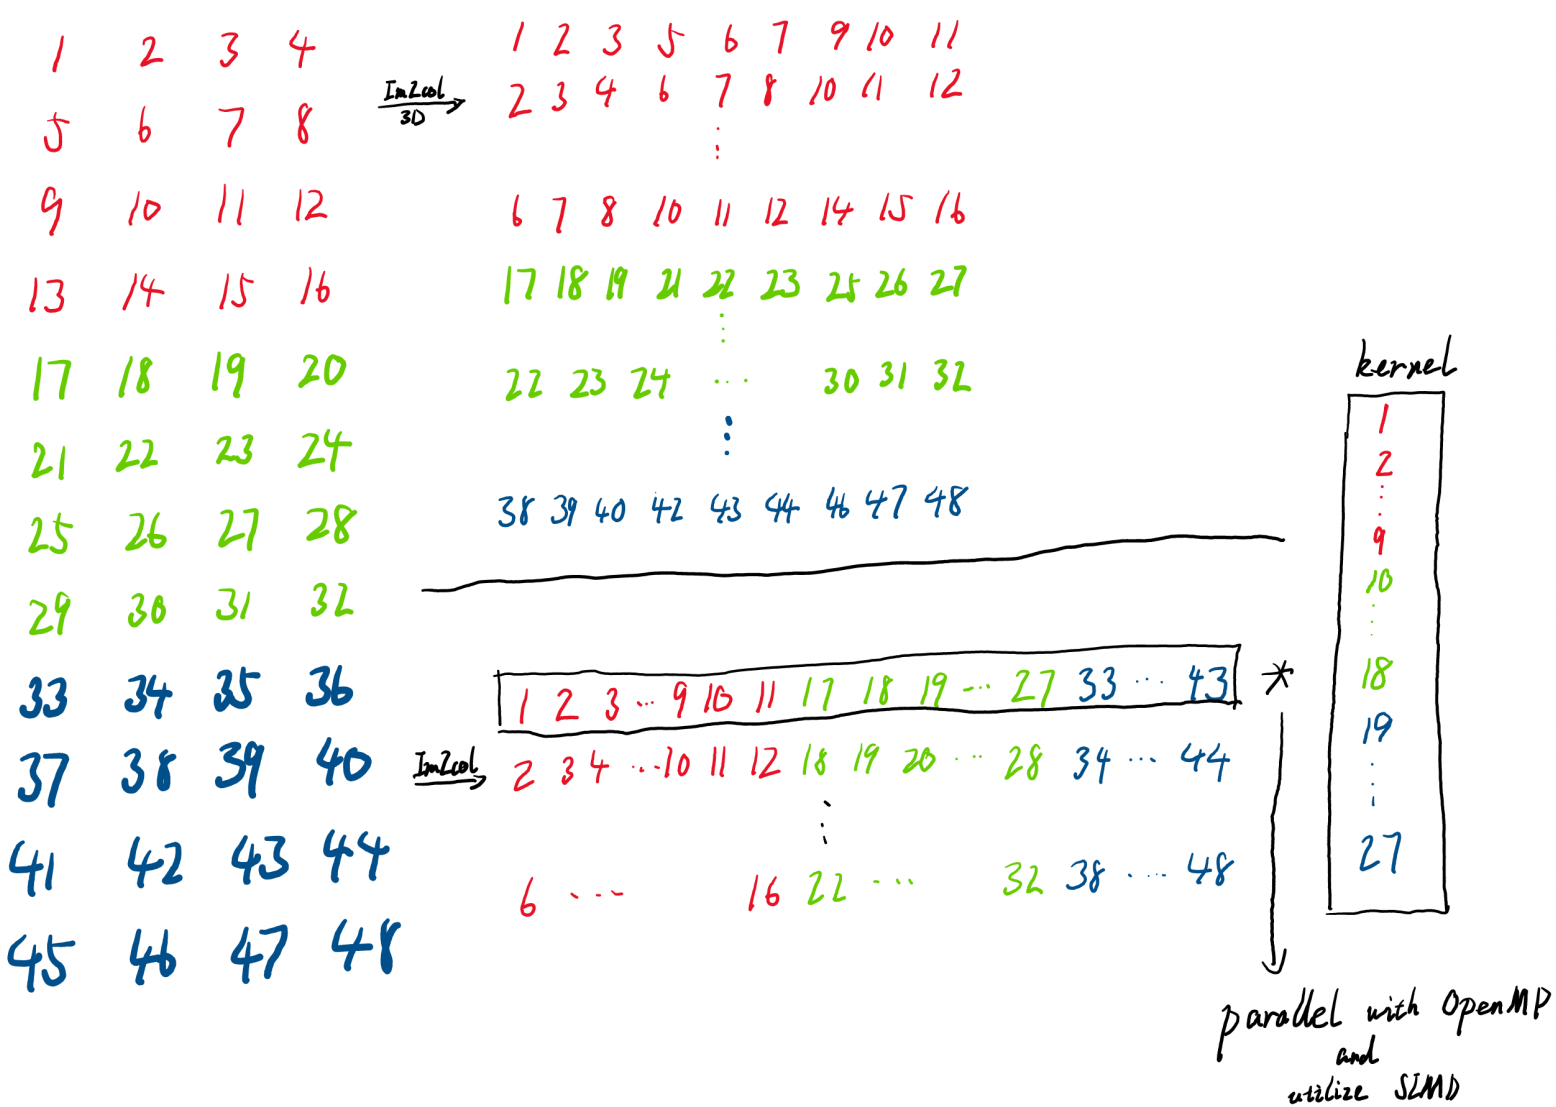 1 2 3 4
5 6 7 8
9 10 11 12
13 14 15 16
17 18 19 20
21 22 23 24
25 26 27 28
29 30 31 32
33 34 35 36
37 38 39 40
41 42 43 44
45 46 47 48
Im2col
3D
1 2 3 5 6 7 9 10 11
2 3 4 6 7 8 10 11 12
⋮
6 7 8 10 11 12 14 15 16
17 18 19 21 22 23 25 26 27
⋮
22 23 24 ... 30 31 32
⋮
38 39 40 42 43 44 46 47 48
Im2col
1 2 3 ... 9 10 11 17 18 19 ... 27 33 ... 43 *
2 3 4 ... 10 11 12 18 19 20 ... 28 34 ... 44
⋮
6 ... 16 22 ... 32 38 ... 48
kernel
1
2
⋮
9
10
⋮
18
19
⋮
27
parallel with OpenMP
and
utilize SIMD